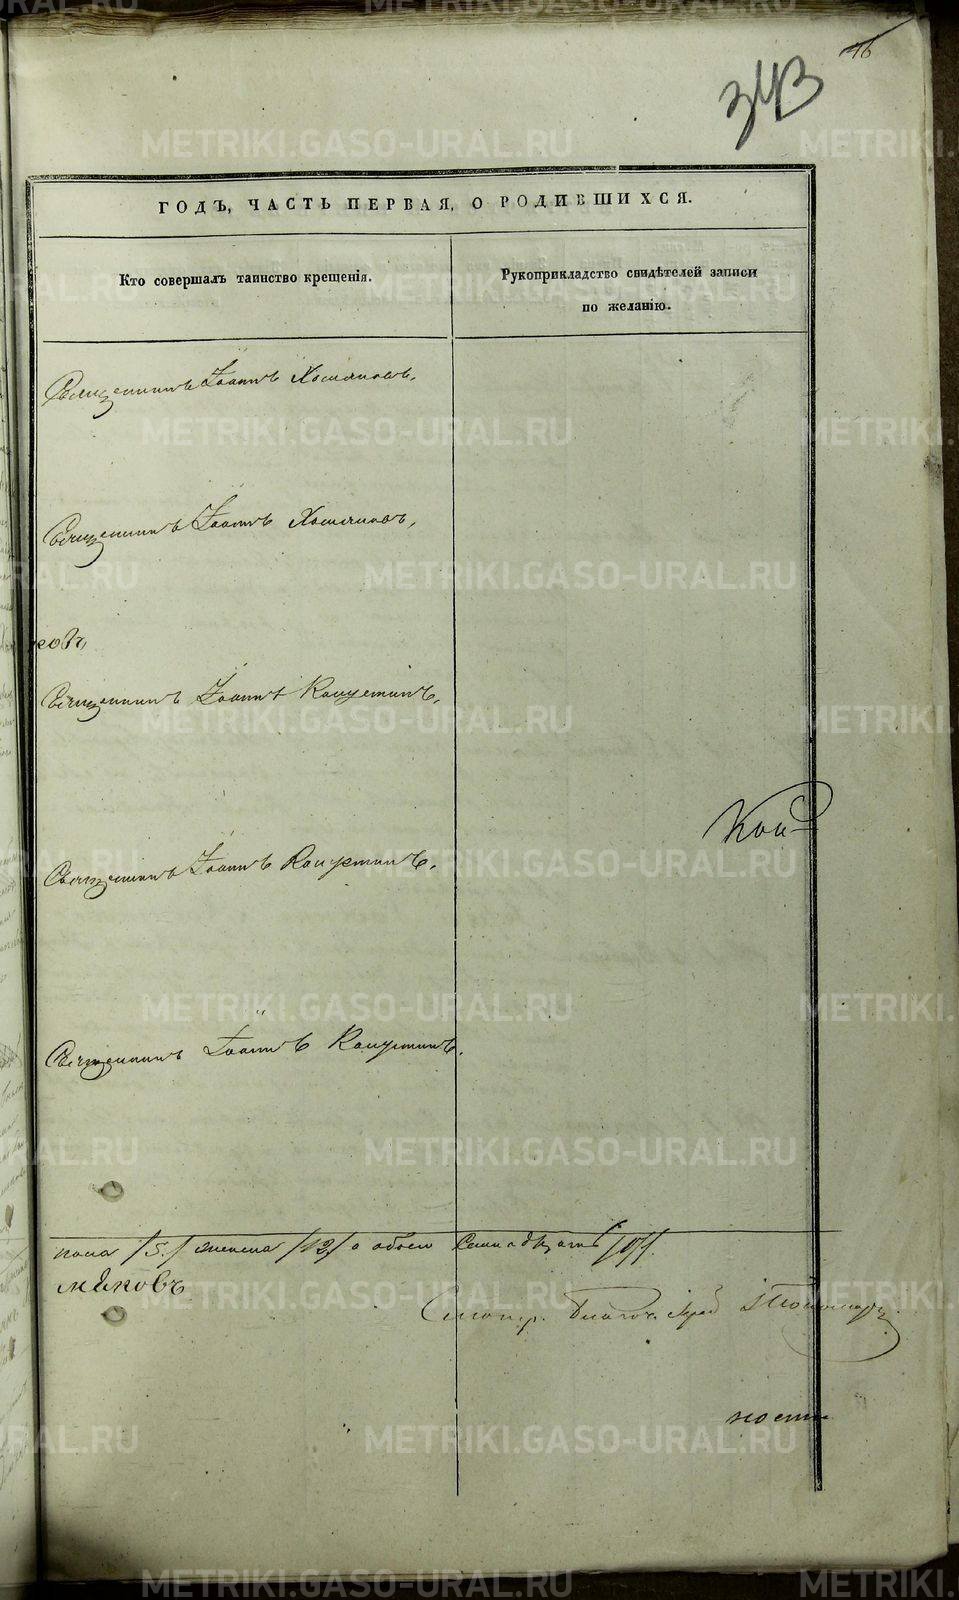 46
343
ГОДЪ, ЧАСТЬ ПЕРВАЯ, О РОДИВШИХСЯ.
Кто совершалъ таинство крещенія.
Рукоприкладство свидѣтелей записи
по желанію.
Священникъ Іоаннъ Хомяковъ.
Священникъ Іоаннъ Хомяковъ.
ковъ
Священникъ Іоаннъ Капустинъ.
Священникъ Іоаннъ Капустинъ.
Священникъ Іоаннъ Капустинъ.
пола /5/ женска /12/ а обоего Семнадцать /17/.
мяковъ
Смотр. Благоч. Іерей І Пономарев
ности
METRIKI.GASO-URAL.RU